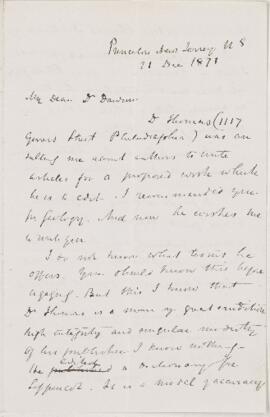 Princeton New Jersey U S
21 Dec 1871
My Dear Dr Dawson
Dr Thomas (1117
Girard Street Philadelphia) was con
sulting me about authors to write
articles for a proposed work which
he is to edit. I recommended you
for Geology. And now he wishes me
to write you
I do not know what terms he
offers. You should know this before
engaging. But this I know that
Dr Thomas is a man of great erudition
high integrity and singular modesty
Of his publisher I know nothing—
He edited a dictionary for
Lippincot. He is a model of accuracy